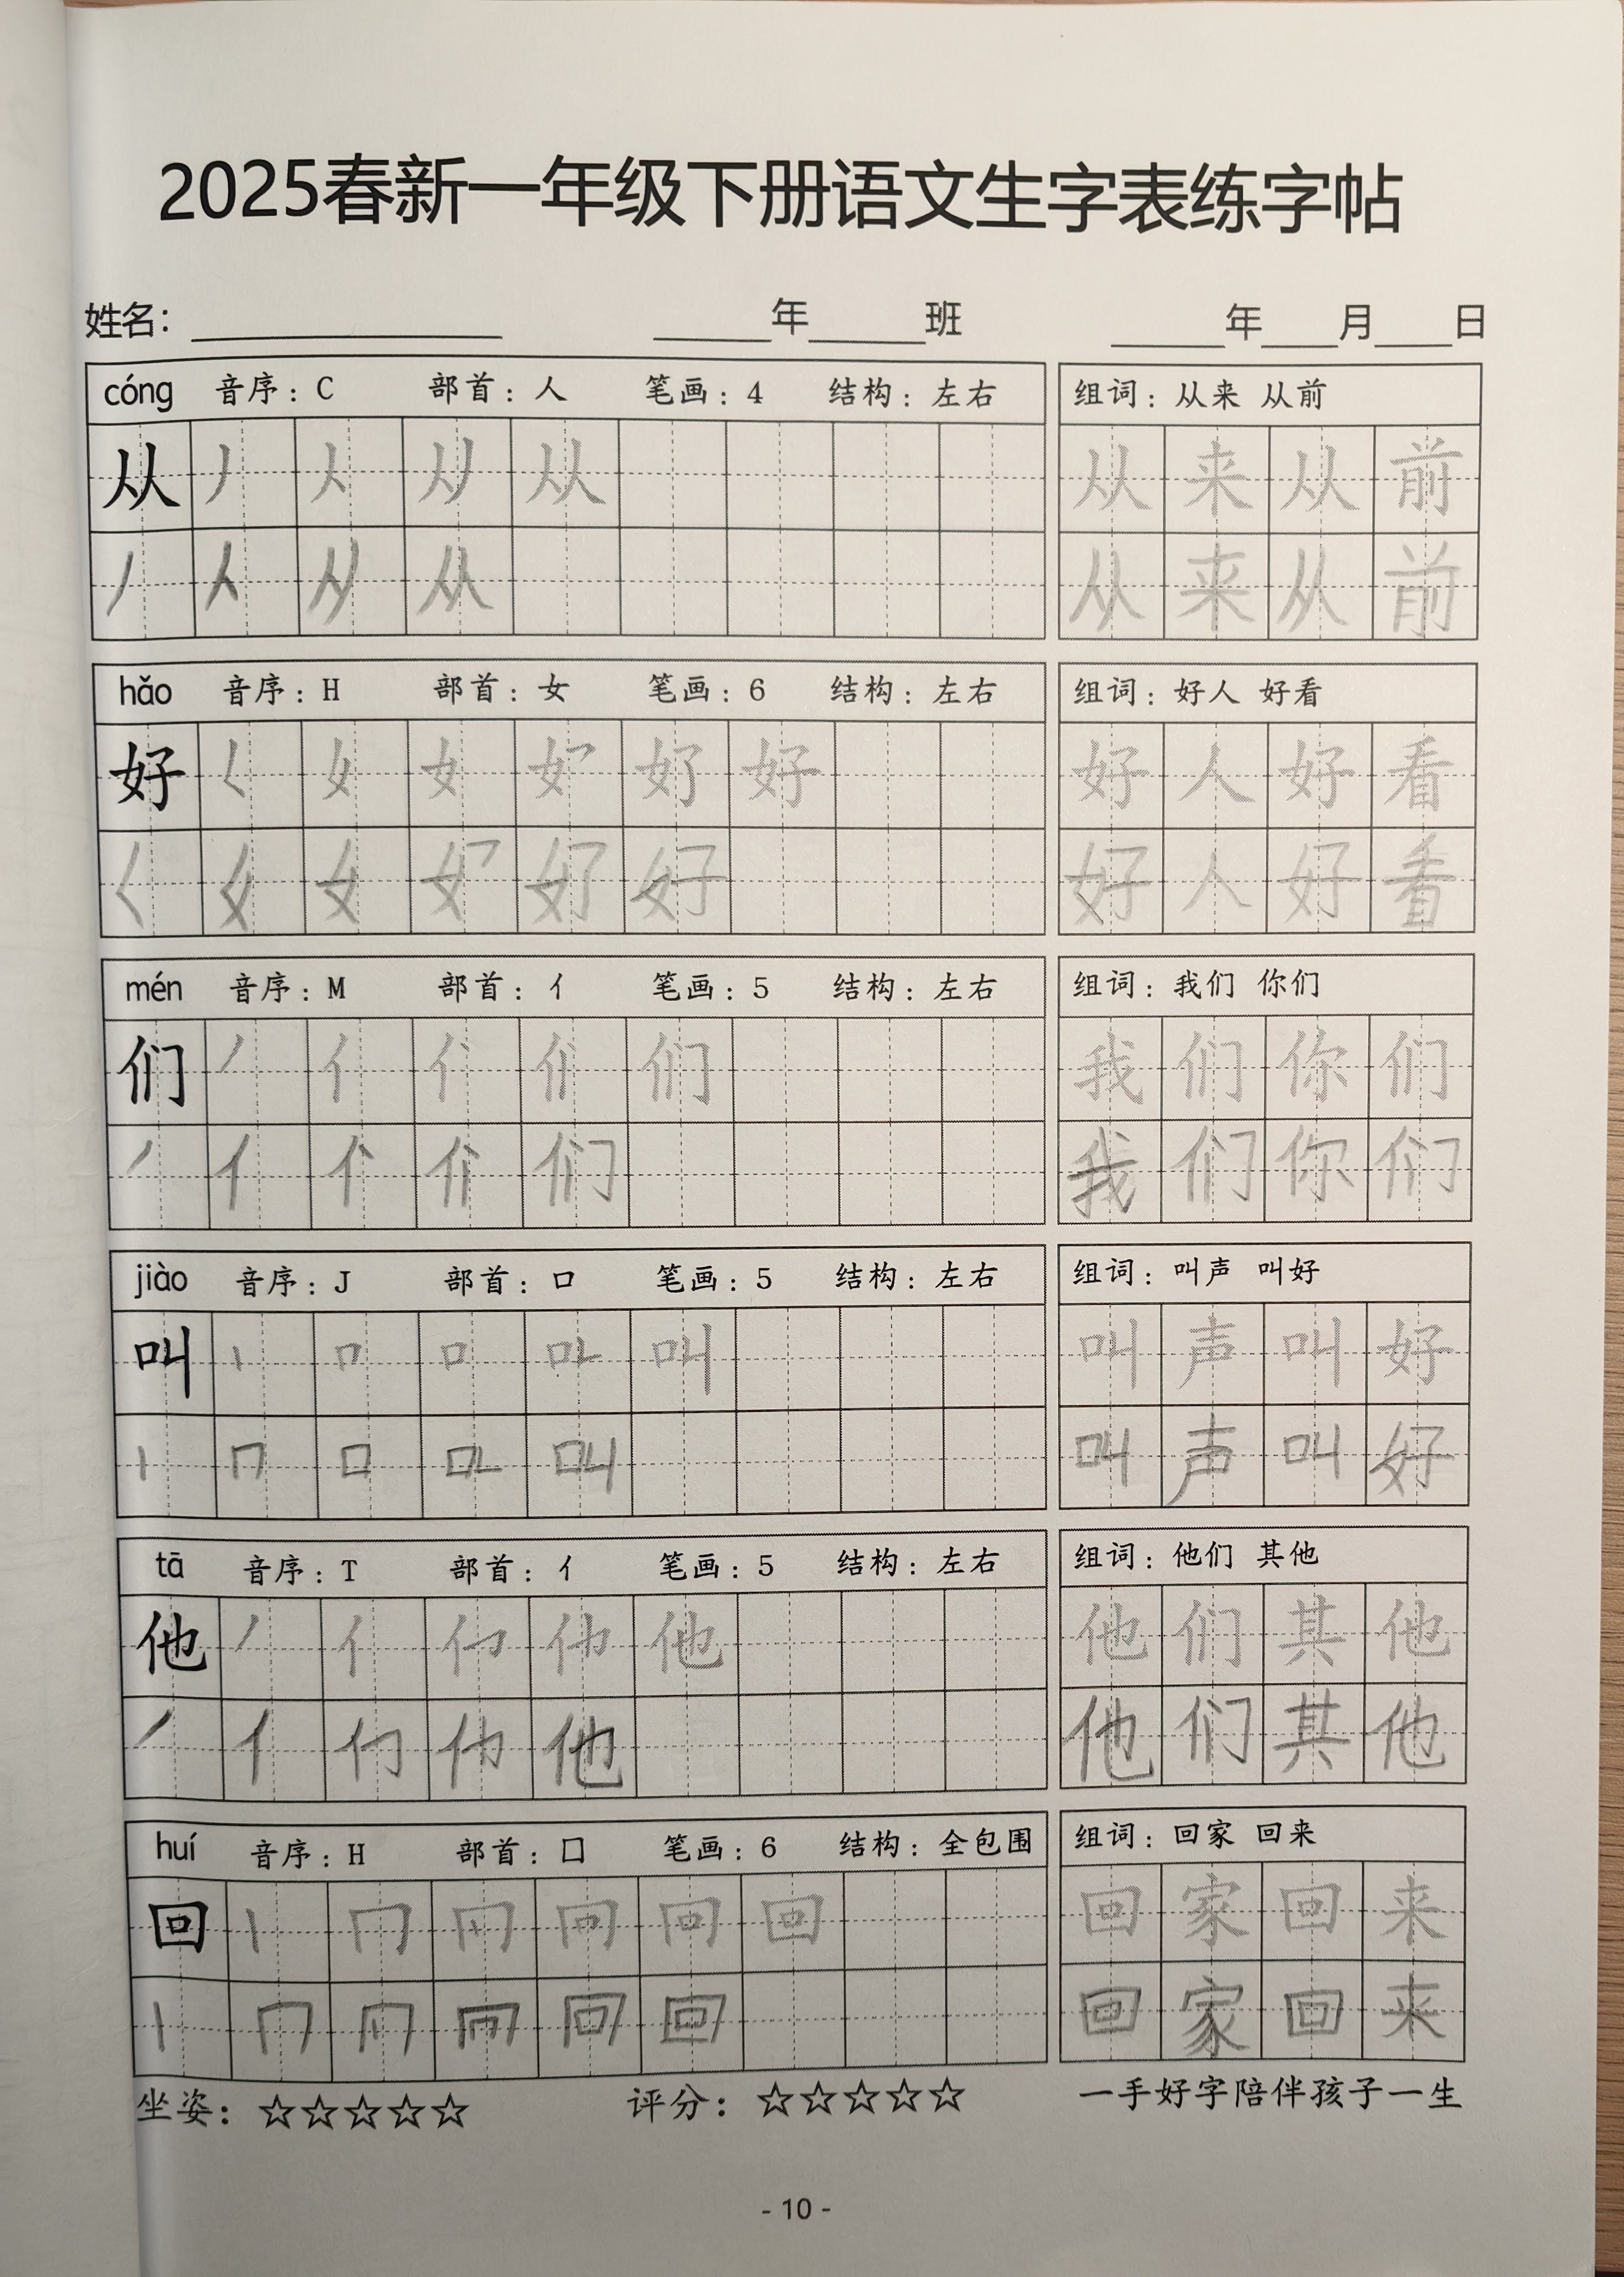 2025春新一年级下册语文生字表练字帖
姓名：____ ____年____班 ____年____月____日
cóng 音序：C 部首：人 笔画：4 结构：左右 组词：从来 从前
从 丿 人 从 从 来 从 前
丿 人 从 从 来 从 前
hǎo 音序：H 部首：女 笔画：6 结构：左右 组词：好人 好看
好 女 好 好 人 好 看
女 好 好 人 好 看
mén 音序：M 部首：亻 笔画：5 结构：左右 组词：我们 你们
们 丿 亻 们 我 们 你 们
丿 亻 们 我 们 你 们
jiào 音序：J 部首：口 笔画：5 结构：左右 组词：叫声 叫好
叫 丨 口 叫 叫 声 叫 好
丨 口 叫 叫 声 叫 好
tā 音序：T 部首：亻 笔画：5 结构：左右 组词：他们 其他
他 丿 亻 他 他 们 其 他
丿 亻 他 他 们 其 他
huí 音序：H 部首：囗 笔画：6 结构：全包围 组词：回家 回来
回 丨 冂 回 回 家 回 来
丨 冂 回 回 家 回 来
坐姿：☆☆☆☆☆ 评分：☆☆☆☆☆ 一手好字陪伴孩子一生
- 10 -